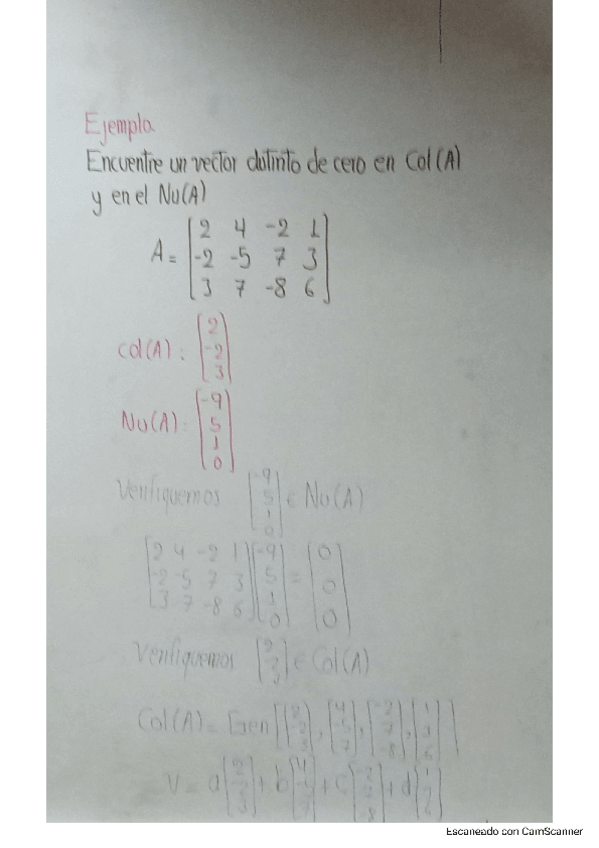 Ejemplo.
Encuentre un vector distinto de cero en Col(A)
y en el Nu(A)
A = [2 4 -2 1
-2 -5 7 3
3 7 -8 6]
Col(A): [2
-2
3]
Nu(A): [-9
5
1
0]
Verifiquemos [-9 5 1 0] ∈ Nu(A)
[2 4 -2 1] [-9] = [0]
[-2 -5 7 3] [5] [0]
[3 7 -8 6] [1] [0]
[0]
Verifiquemos [2 -2 3] ∈ Col(A)
Col(A) = Gen {[2 -2 3], [4 -5 7], [-2 7 -8], [1 3 6]}
V = a[2 -2 3] + b[4 -5 7] + c[-2 7 -8] + d[1 3 6]
Escaneado con CamScanner